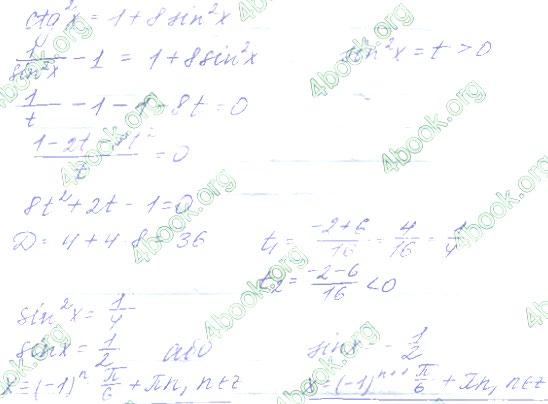 ctg²x = 1 + 8 sin²x
1/sin²x - 1 = 1 + 8 sin²x    sin²x = t > 0
1/t - 1 - 1 - 8t = 0
8t² + 2t - 1 = 0
D = 4 + 4·8 = 36    t₁ = (-2+6)/16 = 4/16 = 1/4
t₂ = (-2-6)/16 < 0
sin²x = 1/4
sin x = 1/2    або    sin x = -1/2
x = (-1)ⁿ π/6 + πn, n∈Z    x = (-1)ⁿ⁺¹ π/6 + πn, n∈Z
4book.org
4book.org
4book.org
4book.org
4book.org
4book.org
4book.org
4book.org